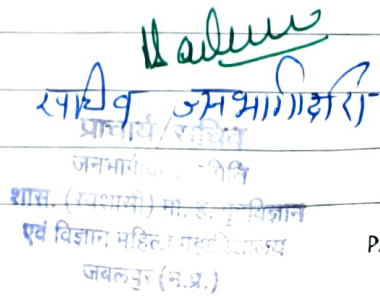 सचिव जनभागीदारी
प्राचार्य/सचिव
जनभागी
शास. (स्वशासी) मा. ह. गृहविज्ञान
एवं विज्ञान महिला महाविद्यालय
P.
जबलपुर (म.प्र.)